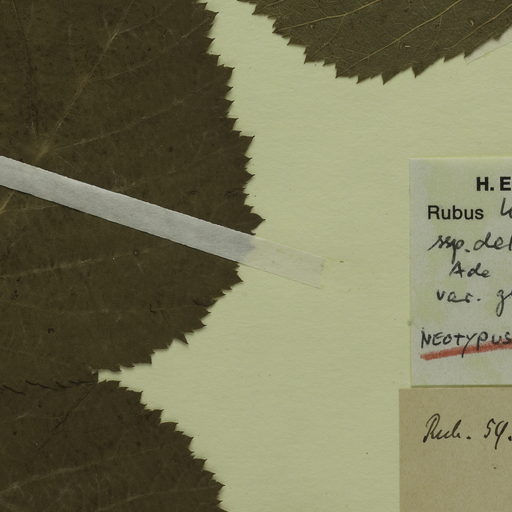 H. E
Rubus
ssp. del
Ade
var. g
NEOTYPUS
Rub. 59.